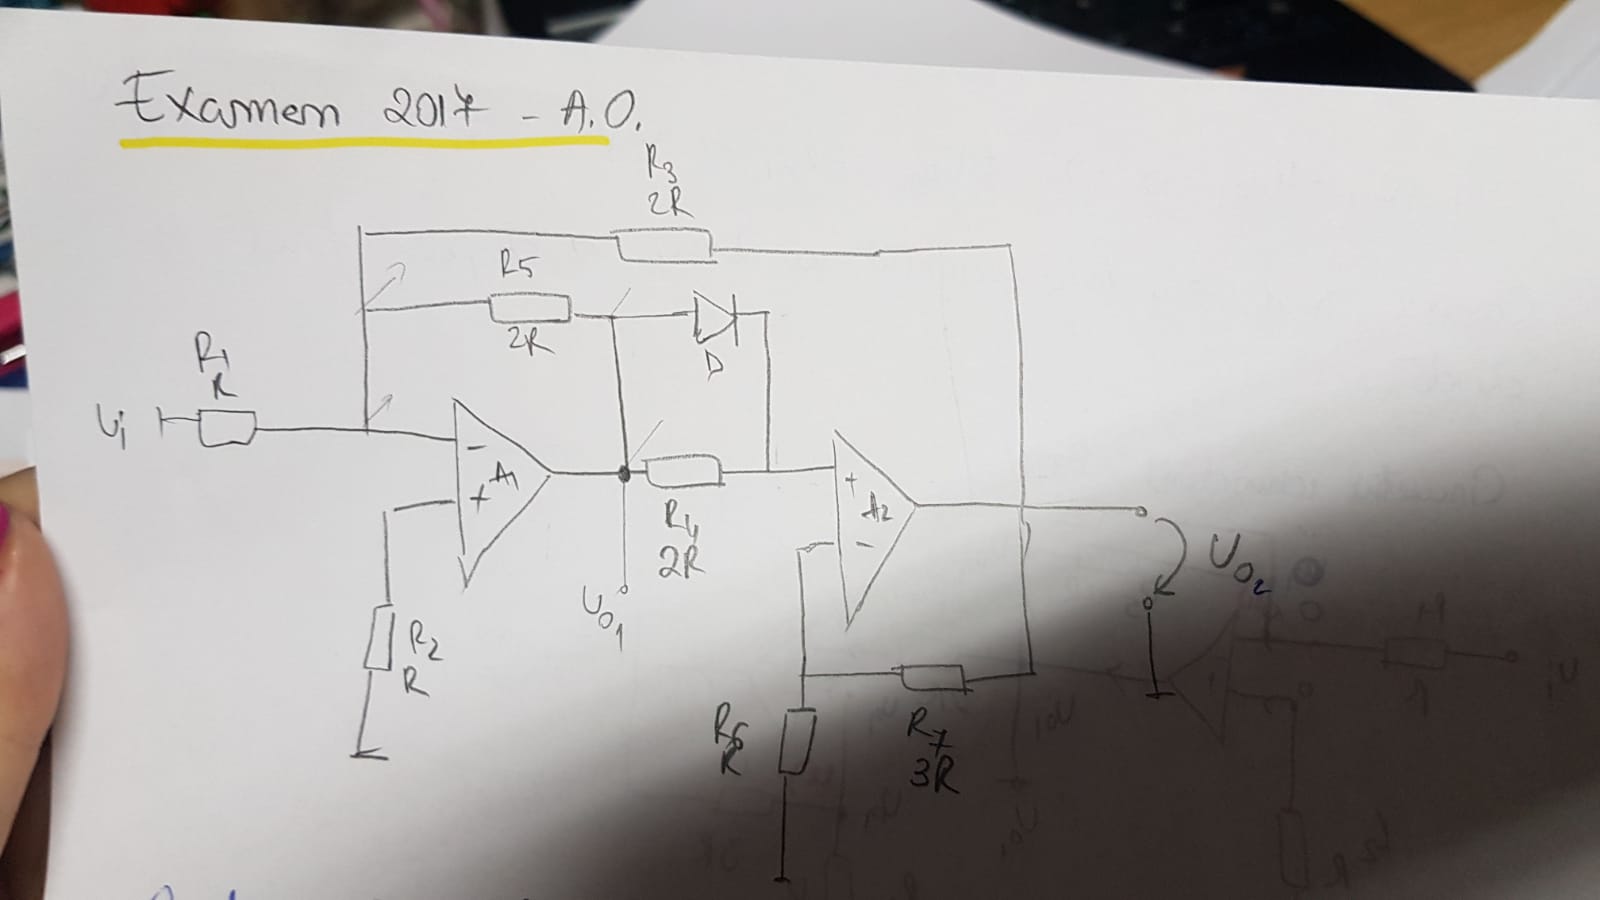 Examen 2017 - A.O.
R3
2R
R5
2R
D
R1
R
Ui
- A1
+
R4
2R
U01
+ A2
-
U02
R2
R
R6
R
R7
3R